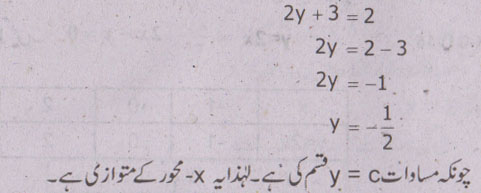 2y + 3 = 2
2y = 2 − 3
2y = −1
y = −1/2
چونکہ مساوات y = c قسم کی ہے۔ لہٰذا یہ x- محور کے متوازی ہے۔